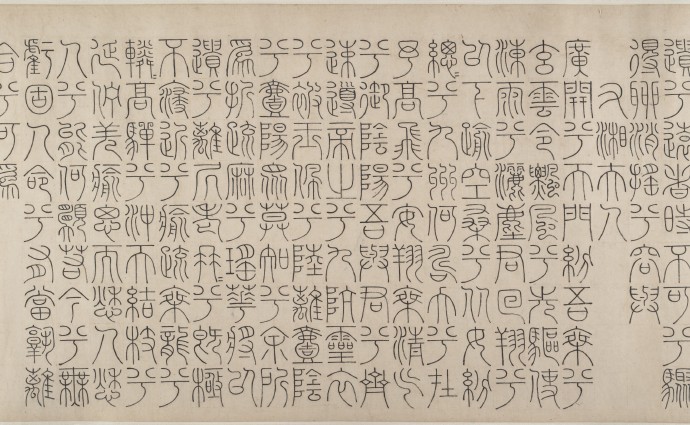 遺兮遠者時不可兮驟
得聊消搖兮容與
右湘夫人
廣開兮天門紛吾乘兮
玄雲令飄風兮先驅使
涷雨兮灑塵君迴翔兮
以下踰空桑兮從女紛
總〻兮九州何壽夭兮在
予高飛兮安翔乘清氣
兮御陰陽吾與君兮齊
速導帝之兮九阬靈衣
兮被玉佩兮陸離壹陰
兮壹陽衆莫知兮余所
爲折疏麻兮瑤華將以
遺兮離居老冉〻兮既極
不寖近兮愈疏乘龍兮
轔〻高駝兮沖天結枝兮
延佇羌愈思而愁人愁
人兮奈何願若今兮無
虧固人命兮有當孰離
合兮可爲